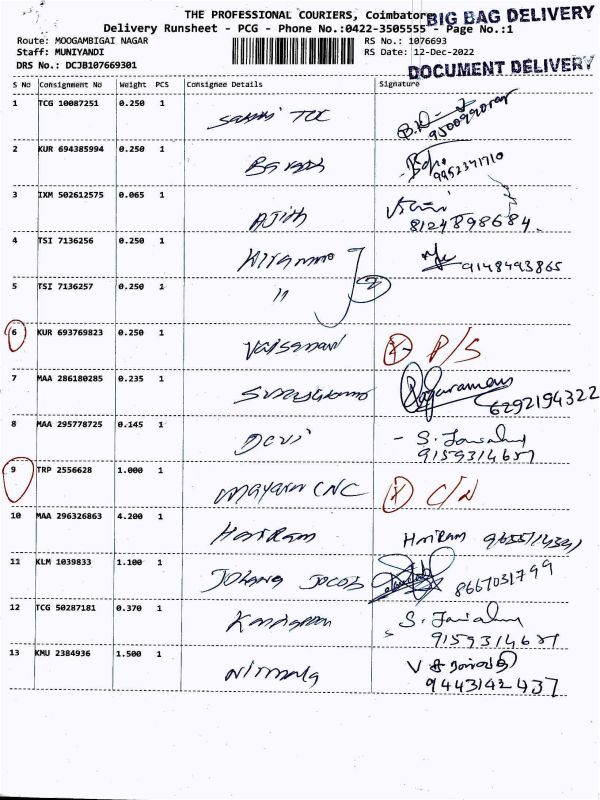 THE PROFESSIONAL COURIERS, Coimbatore
BIG BAG DELIVERY
Delivery Runsheet - PCG - Phone No.:0422-3505555 - Page No.:1
Route: MOOGAMBIGAI NAGAR RS No.: 1076693
Staff: MUNIYANDI RS Date: 12-Dec-2022
DRS No.: DCJB107669301
DOCUMENT DELIVERY
S No Consignment No Weight PCS Consignee Details Signature
1 TCG 10087251 0.250 1
2 KUR 694385994 0.250 1
9952371710
3 IXM 502612575 0.065 1 AJith
8124898684.
4 TSI 7136256 0.250 1
9148493865
5 TSI 7136257 0.250 1 11 2
6 KUR 693769823 0.250 1 X P/S
7 MAA 286180285 0.235 1
6292194322
8 MAA 295778725 0.145 1 Devi
9 TRP 2556628 1.000 1 CNC X C/N
10 MAA 296326863 4.200 1 HariRam HariRam
11 KLM 1039833 1.100 1
8667031799
12 TCG 50287181 0.370 1
13 KMU 2384936 1.500 1 Nirmala
9443142437